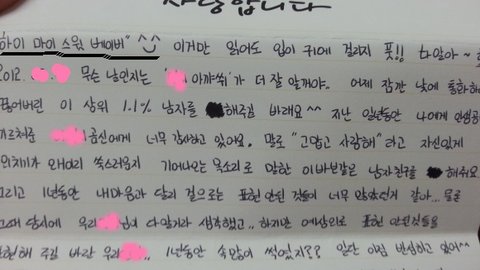 사랑합니다
하이 마이 스윗 베이비" ^^ 이거만 읽어도 입이 귀에 걸리지 풋!! 다알아~
2012. 무슨 날인지는 " 아까쒸"가 더 잘 알꺼야. 어제 잠깐 낮에 통화하
끊어버린 이 상위 1.1% 남자를 해주길 바래요^^ 지난 일년동안 나에게
르쳐준 곰신에게 너무 감사하고 있어요. 말로 "고맙고 사랑해"라고 자신있게
외치기가 왜이리 쑥스러운지 기어나오는 목소리로 말한 이 바보같은 남자친구를 해줘요
그리고 1년동안 내마음과 달리 겉으로는 표현 안된 것들이 너무 많았던거 같아... 물론
그때 당시에 우리 님이 다 알거라 생각했고.. 하지만 예상외로 표현 안된것들을
표현해 주길 바란 우리 .. 1년동안 속많이 썩었지?? 일단 이점 반성하고 있어~